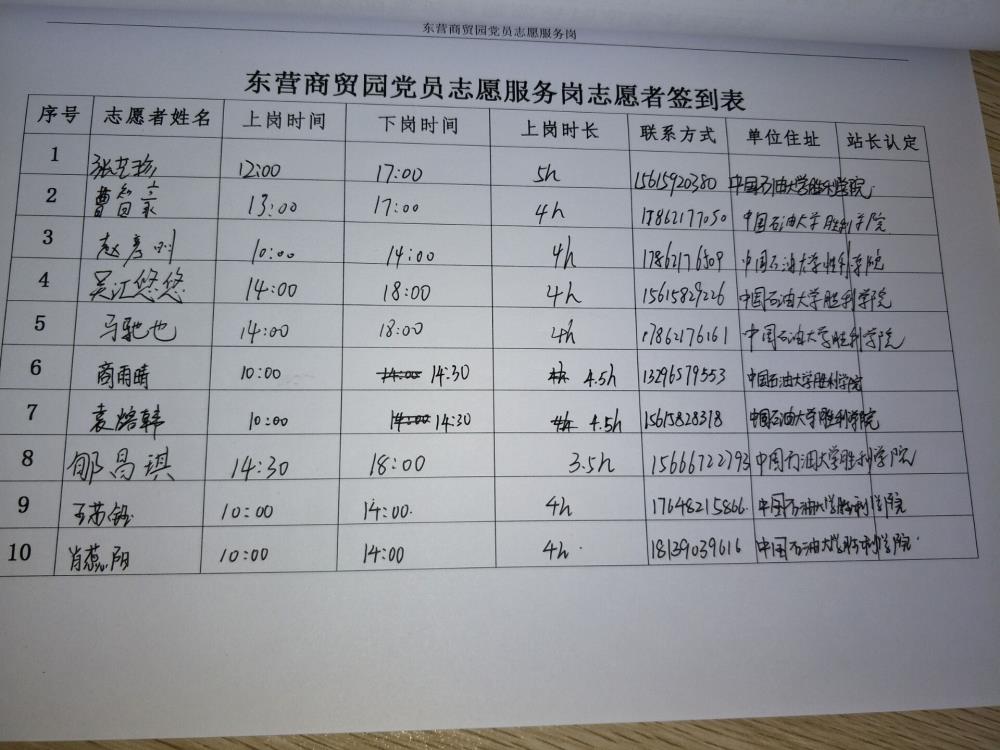 东营商贸园党员志愿服务岗
东营商贸园党员志愿服务岗志愿者签到表
序号 志愿者姓名 上岗时间 下岗时间 上岗时长 联系方式 单位住址 站长认定
1 张艺珍 12:00 17:00 5h 15615920380 中国石油大学胜利学院
2 曹 13:00 17:00 4h 17862177050 中国石油大学胜利学院
3 赵彦刚 10:00 14:00 4h 17862176809 中国石油大学胜利学院
4 吴汇悠悠 14:00 18:00 4h 15615829226 中国石油大学胜利学院
5 马驰也 14:00 18:00 4h 17862176161 中国石油大学胜利学院
6 商雨晴 10:00 14:00 14:30 4h 4.5h 13296579553 中国石油大学胜利学院
7 袁熔韩 10:00 14:00 14:30 4h 4.5h 15615828318 中国石油大学胜利学院
8 郇昌琪 14:30 18:00 3.5h 15666722793 中国石油大学胜利学院
9 王苏钰 10:00 14:00. 4h 17648215866. 中国石油大学胜利学院
10 肖蕊阳 10:00 14:00 4h. 18139039616 中国石油大学胜利学院.